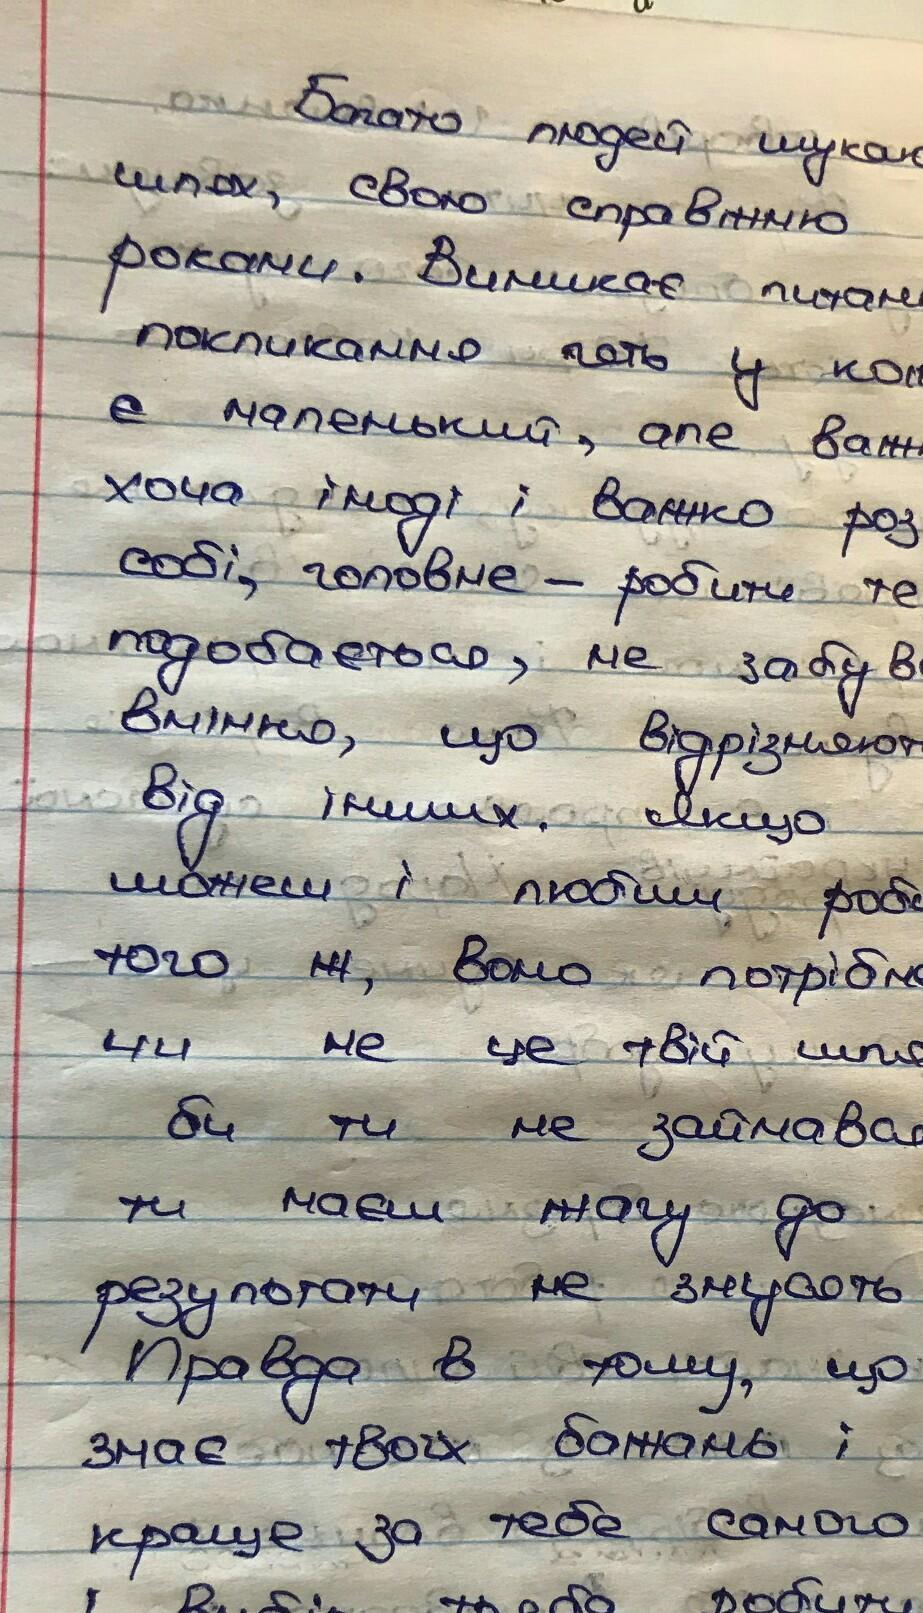 Богато людей шукаю
шлях, свою справжню
роками. Виникає питанн
покликання геть у кож
є маленький, але важ
хоча іноді і важко роз-
собі, головне – робити те
подобається, не забув
вміння, що відрізняют
від інших. Якщо
можеш і любиш роб
того ж, воно потрібн
чи не це твій шля
би ти не займав
ти маєш жагу до
результати не змусять
Правда в тому, що
знає твоїх бажань і
краще за тебе самого
і вибір треба робити